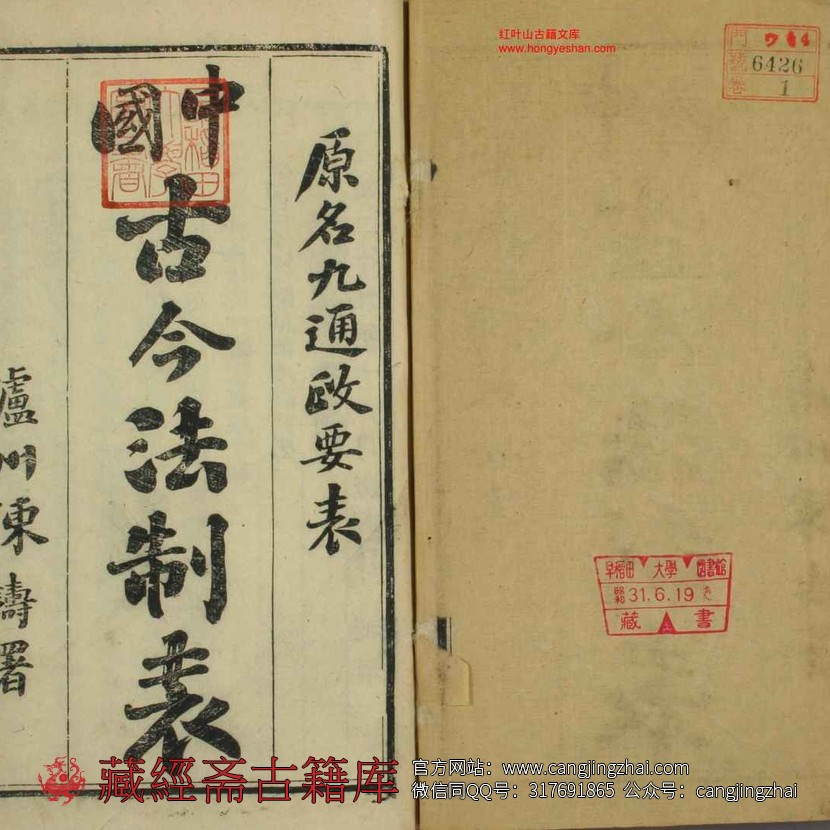 红叶山古籍文库
www.hongyeshan.com
門 ヲ 4
號 6426
卷 1
原名九通政要表
中國
古今法制表
瀘川陳濤署
早稻田大學圖書館
昭和 31.6.19
藏書
藏經斋古籍库
官方网站：www.cangjingzhai.com
微信同QQ号：317691865 公众号：cangjingzhai